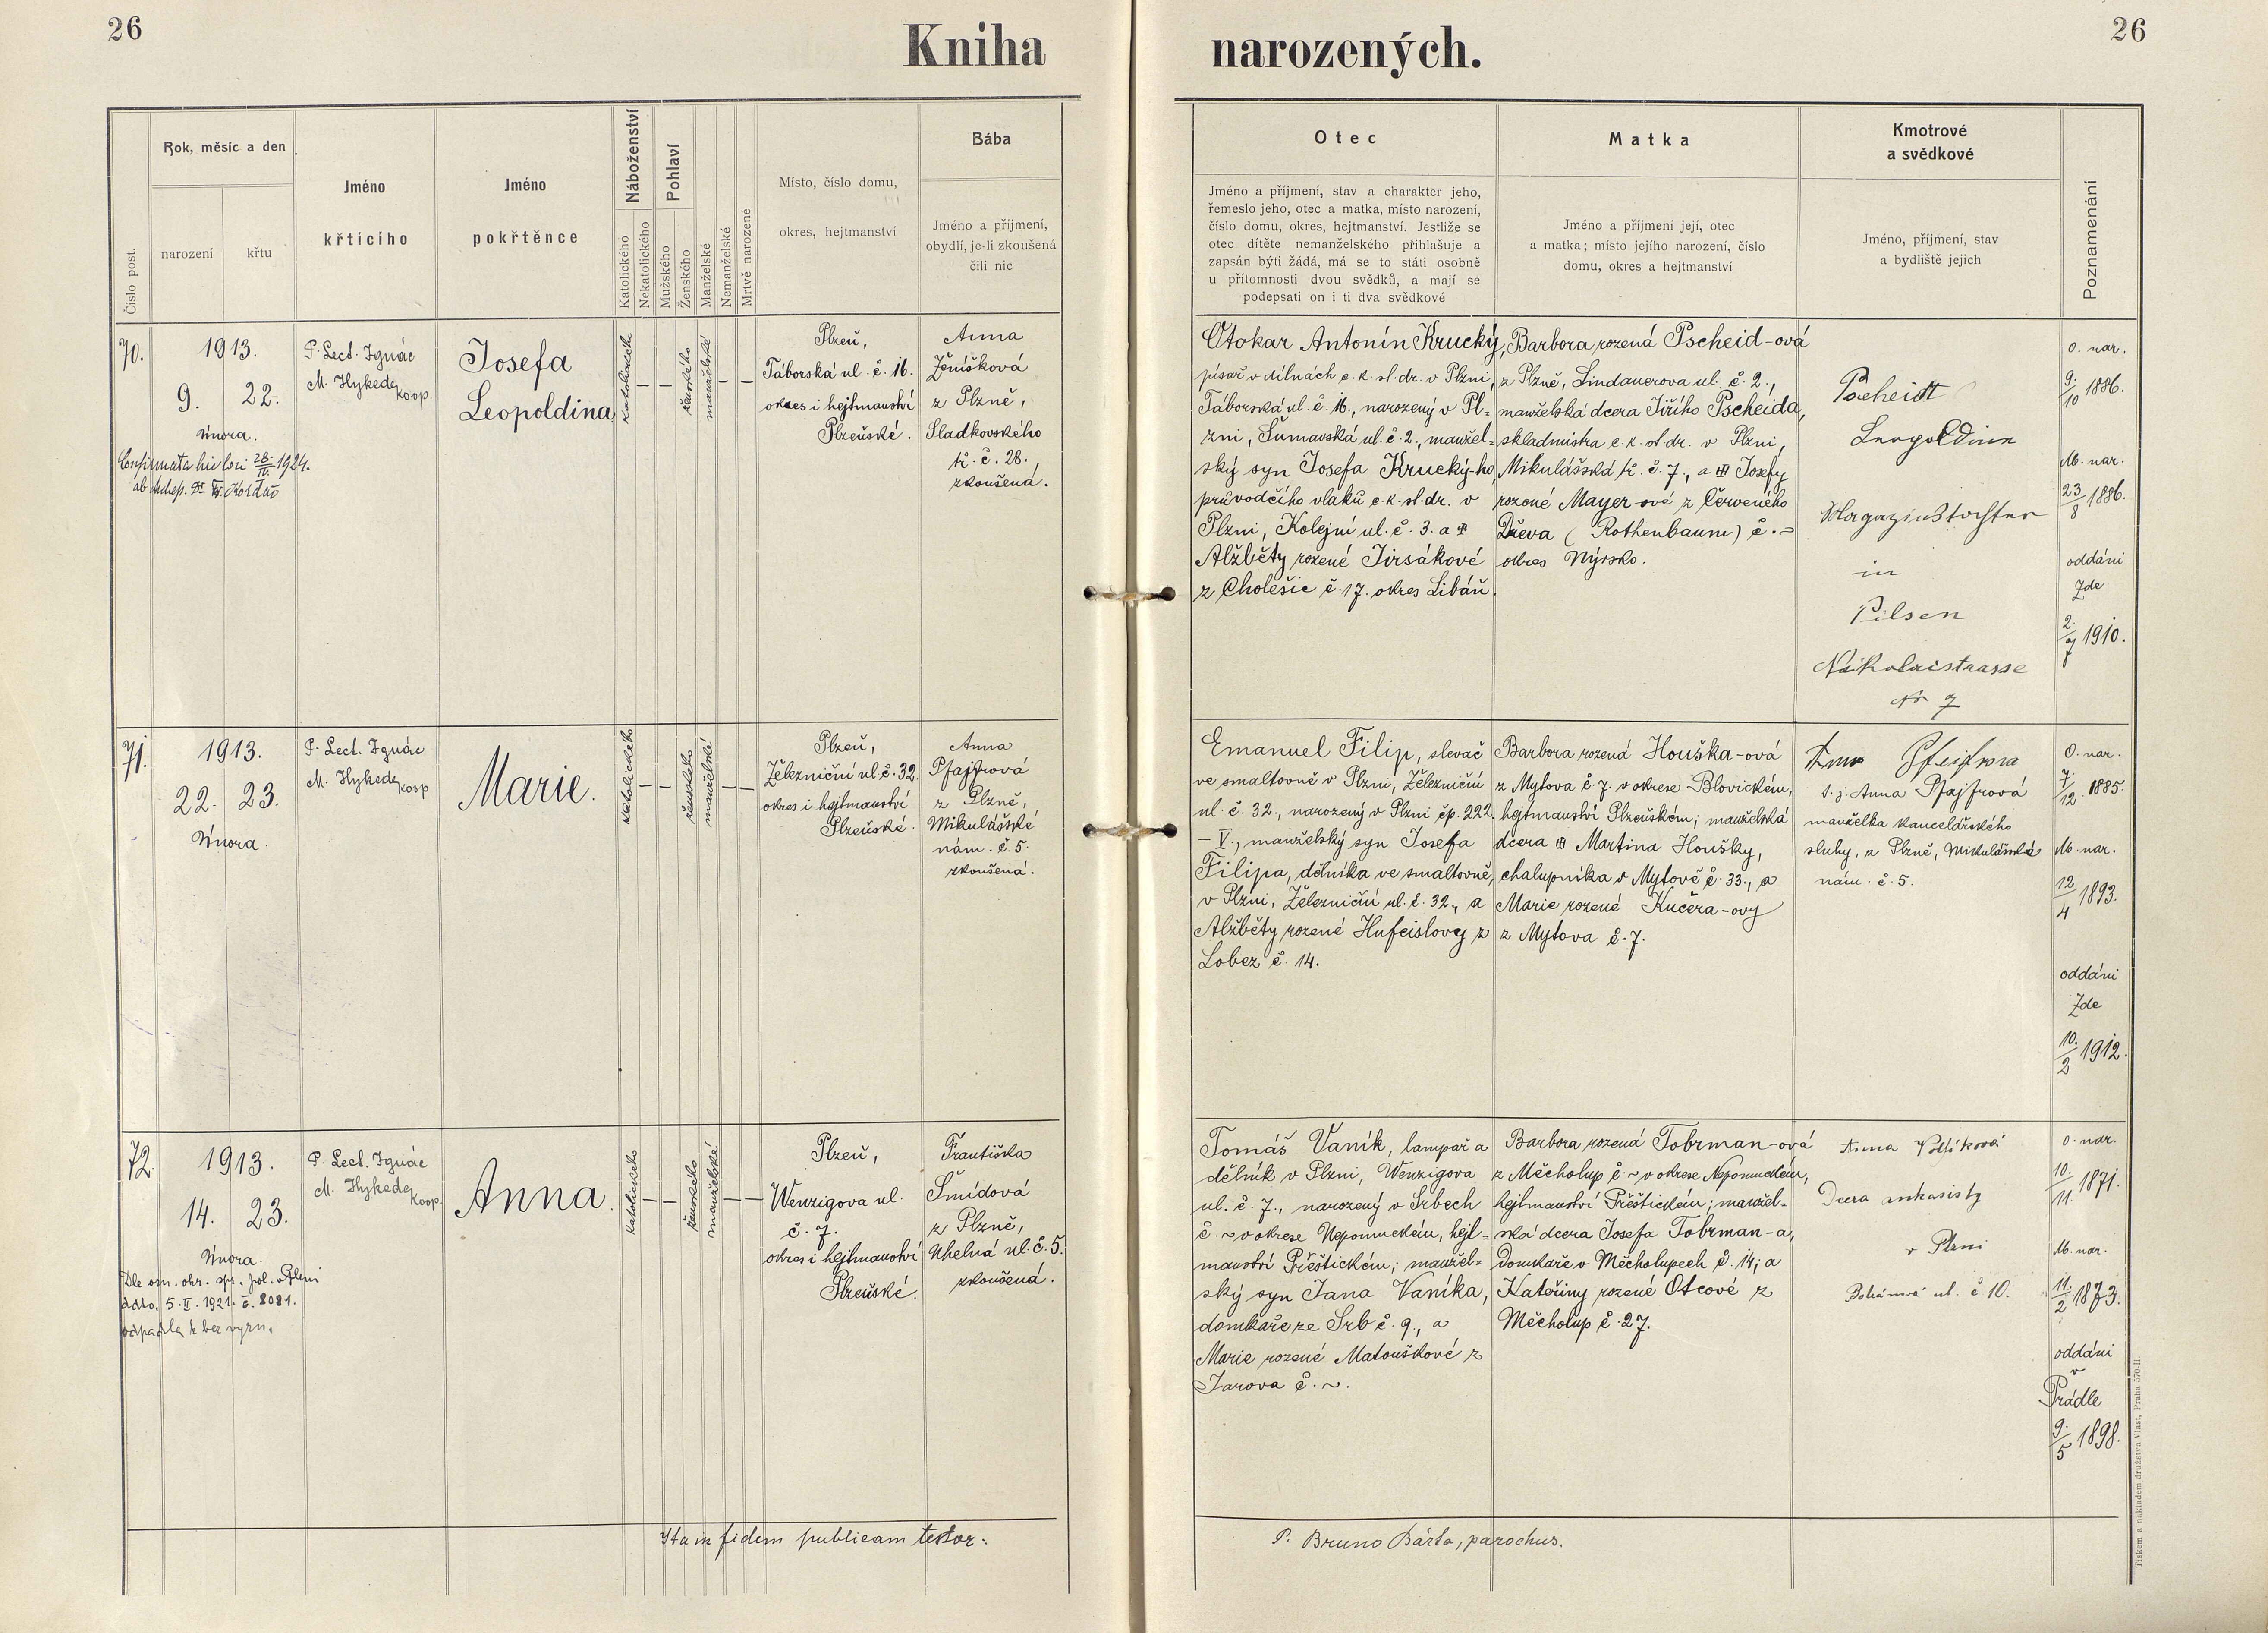 26
Kniha narozených.
26
Číslo post.
Rok, měsíc a den
narození
křtu
Jméno
křtícího
Jméno
pokřtěnce
Náboženství
Katolického
Nekatolického
Pohlaví
Mužského
Ženského
Manželské
Nemanželské
Mrtvě narozené
Místo, číslo domu,
okres, hejtmanství
Bába
Jméno a příjmení,
obydlí, je-li zkoušená
čili nic
Otec
Jméno a příjmení, stav a charakter jeho,
řemeslo jeho, otec a matka, místo narození,
číslo domu, okres, hejtmanství. Jestliže se
otec dítěte nemanželského přihlašuje a
zapsán býti žádá, má se to státi osobně
u přítomnosti dvou svědků, a mají se
podepsati on i ti dva svědkové
Matka
Jméno a příjmení její, otec
a matka; místo jejího narození, číslo
domu, okres a hejtmanství
Kmotrové
a svědkové
Jméno, příjmení, stav
a bydliště jejich
Poznamenání
70.
1913.
9. 22.
února.
Confirmata hic loci 28/IV. 1924.
P. Lect. Ignác
M. Hykede koop.
Josefa
Leopoldina
katolického
— —
ženského
manželské
— —
Plzeň,
Táborská ul. č. 16.
okres i hejtmanství
Plzeňské.
Anna
Ženíšková
z Plzně,
Sladkovského
tř. č. 28.
zkoušená.
Otokar Antonín Krucký,
písař v dílnách c. k. st. dr. v Plzni,
Táborská ul. č. 16., narozený v Pl-
zni, Šumavská ul. č. 2., manžel-
ský syn Josefa Krucký-ho
průvodčího vlaků c. k. st. dr. v
Plzni, Kolejní ul. č. 3. a
Alžběty rozené Jirsákové
z Cholešic č. 17. okres Libáň.
Barbora rozená Pscheid-ová
z Plzně, Lindauerova ul. č. 2.,
manželská dcera Jiřího Pscheida,
skladmistra c. k. st. dr. v Plzni,
Mikulášská tř. č. 7., a Josefy
rozené Mayer-ové z Červeného
Dřeva (Rothenbaum) č. –
okres Nýrsko.
Pscheidt
Leopoldine
in
Pilsen
Nikolaistrasse
Nr 7
O. nar.
9./10 1886.
M. nar.
23/8 1886.
oddáni
zde
1910.
71.
1913.
22. 23.
února.
P. Lect. Ignác
M. Hykede koop
Marie.
katolického
— —
ženského
manželské
— —
Plzeň,
Železniční ul. č. 32.
okres i hejtmanství
Plzeňské.
Anna
Pfajfrová
z Plzně,
Mikulášské
nám. č. 5.
zkoušená.
Emanuel Filip, slevač
ve smaltovně v Plzni, Železniční
ul. č. 32., narozený v Plzni čp. 222.
– V., manželský syn Josefa
Filipa, dělníka ve smaltovně,
v Plzni, Železniční ul. č. 32., a
Alžběty rozené Hufeislovy z
Lobez č. 14.
Barbora rozená Houška-ová
z Mytova č. 7. v okrese Blovickém,
hejtmanství Plzeňském; manželská
dcera Martina Houšky,
chalupníka v Mytově č. 33., a
Marie rozené Kučera-ovy
z Mytova č. 7.
t. j. Anna Pfajfrová
manželka kancelářského
sluhy, z Plzně, Mikulášské
nám. č. 5.
O. nar.
7./12. 1885.
M. nar.
12/4 1893.
oddáni
zde
10./2 1912.
72.
1913.
14. 23.
února.
Dle ozn. okr. spr. pol. v Plzni
ddto. 5. II. 1921. č. 2021.
odpadla k bez vyzn.
P. Lect. Ignác
M. Hykede koop.
Anna.
katolického
— —
ženského
manželské
— —
Plzeň,
Wenzigova ul.
č. 7.
okres i hejtmanství
Plzeňské.
Františka
Šmídová
z Plzně,
Uhelná ul. č. 5.
zkoušená.
Tomáš Vaník, lampař a
dělník v Plzni, Wenzigova
ul. č. 7., narozený v Srbech
č. ~ v okrese Nepomuckém, hejt-
manství Přeštickém; manžel-
ský syn Jana Vaníka,
domkáře ze Srb č. 9., a
Marie rozené Matouškové z
Jarova č. ~.
Barbora rozená Tobrman-ová
z Měcholup č. ~ v okrese Nepomuckém,
hejtmanství Přeštickém; manžel-
ská dcera Josefa Tobrman-a,
domkáře v Měcholupech č. 14; a
Kateřiny rozené Otcové z
Měcholup č. 27.
Anna
Dcera
v Plzni
ul. č 10.
O. nar.
10./11. 1871.
M. nar.
11./2 1873.
oddáni
v
Prádle
9./5 1898.
Ita in fidem publicam testor:
P. Bruno Bárta, parochus.
Tiskem a nákladem družstva Vlast, Praha 570-II.